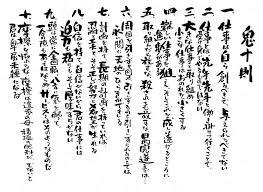 鬼十則
一、仕事は自ら創るべきで、与えられるべきでない
二、仕事とは先手先手と働き掛けて行くことで
受け身でやるものではない
三、大きな仕事と取り組め
小さな仕事は己れを小さくする
四、難しい仕事を狙え そして之を成し遂げるところに
進歩がある
五、取り組んだら放すな 殺されても放すな 目的
六、周囲を引き摺り廻せ
永い間に天地のひらきができる
七、計画を持て 長期の計画を持って居れば
忍耐と工夫と そして正しい努力と希望が生れる
八、自信を持て 自信がないから君の仕事には
迫力も粘りも そして厚味すらがない
九、頭は常に全廻転
サービスとはそのようなものだ
十、摩擦を怖れるな 摩擦は進歩の母 積極の肥料だ